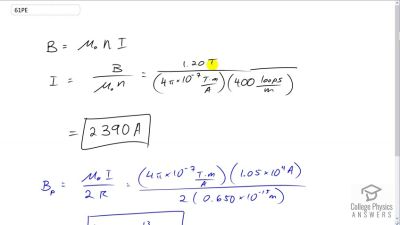 61PE
B = μ₀ n I
I = B / μ₀ n = 1.20 T / (4π×10⁻⁷ T·m/A)(400 loops/m)
= 2390 A
Bₚ = μ₀ I / 2 R = (4π×10⁻⁷ T·m/A)(1.05×10⁴ A) / 2(0.650×10⁻¹⁵ m)
13
College Physics
ANSWERS